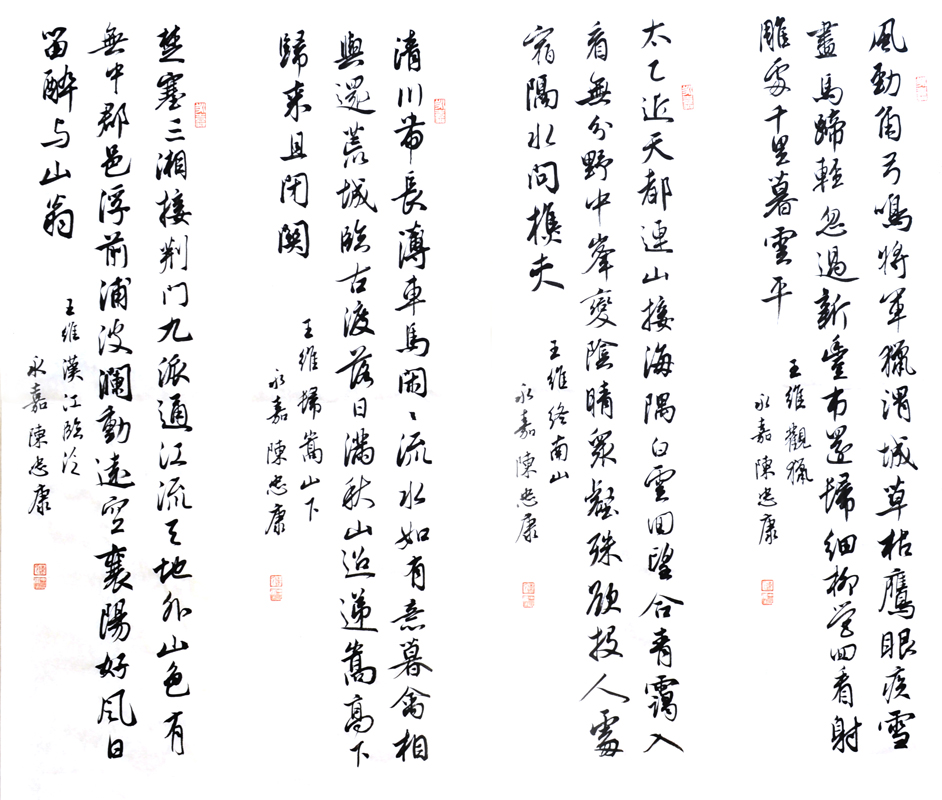 風勁角弓鳴將軍獵渭城草枯鷹眼疾雪
盡馬蹄輕忽過新豐市還歸細柳營回看射
雕處千里暮雲平
王維觀獵
永嘉陳忠康
太乙近天都連山接海隅白雲回望合青靄入
看無分野中峯變陰晴眾壑殊欲投人處
宿隔水問樵夫
王維終南山
永嘉陳忠康
清川帶長薄車馬閑〻流水如有意暮禽相
與還荒城臨古渡落日滿秋山迢遞嵩高下
歸来且闭關
王維歸嵩山下
永嘉陳忠康
楚塞三湘接荆门九派通江流天地外山色有
無中郡邑浮前浦波瀾動遠空襄陽好風日
留醉与山翁
王維漢江臨泛
永嘉陳忠康